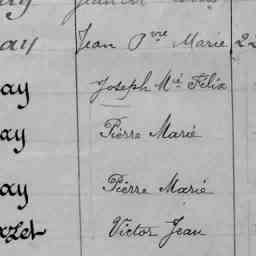 ay Jean Pre Marie 22
ay Joseph Mie Félix
ay Pierre Marie
ay Pierre Marie
Victor Jean